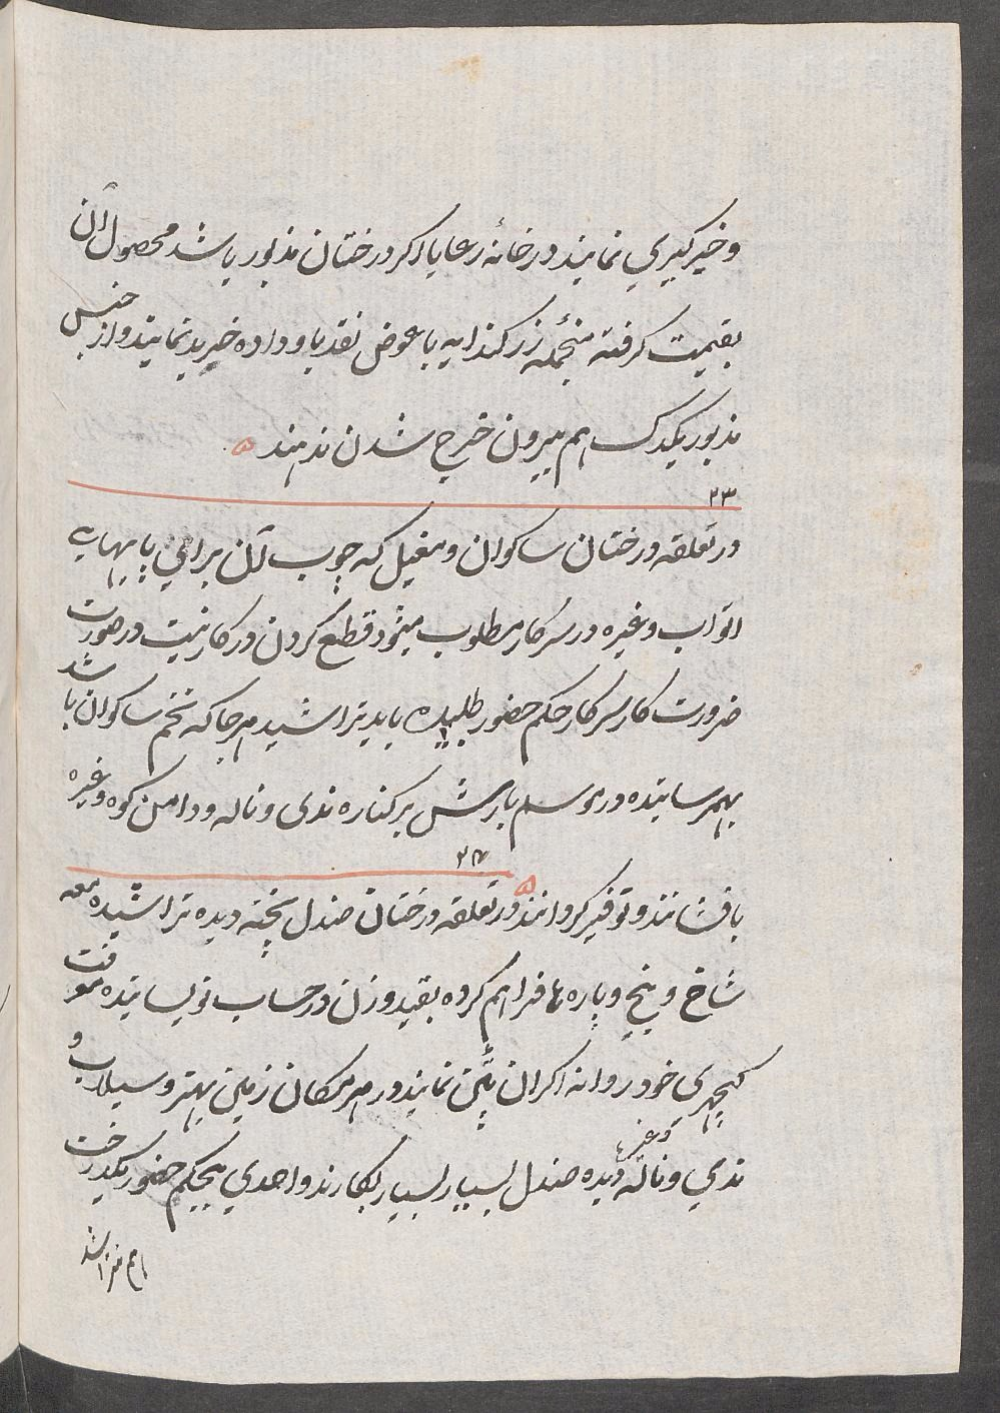 و خیرگیری نمایند در خانهٔ رعایا اگر درختان مذبور باشد محصول آن
بقیمت گرفته منجمله زر کندایه یا عوض نقد باو داده خرید نمایند و از جنس
مذبور یکدک هم بیرون خرچ شدن ندهند ۵
۲۳
در تعلقه درختان ساکوان و مغیل که چوب آن برای پایهایه
اتواب و غیره در سرکار مطلوب میشود قطع کردن درکار نیست در صورت
ضرورت کار سرکار حکم حضور طلبیده باید تراشید هر جا که تخم ساکوان باشد
بهمرسانیده در موسم بارش بر کناره ندی و ناله و دامن کوه و غیره
۲۴
بافشانند و توفیر گردانند ۵ در تعلقه درختان صندل پخته دیده تراشیده معه
شاخ و بیخ و پاره ها فراهم کرده بقید وزن در حساب نویسانیده معرفت
کچهری خود روانه اکران پٹن نمایند در هر مکان زمین بهتر و سیلاب و
ندی و ناله و غیره دیده صندل بسیار بسیار بکارند و احدی بیحکم حضور یکدرخت
هم نتراشد